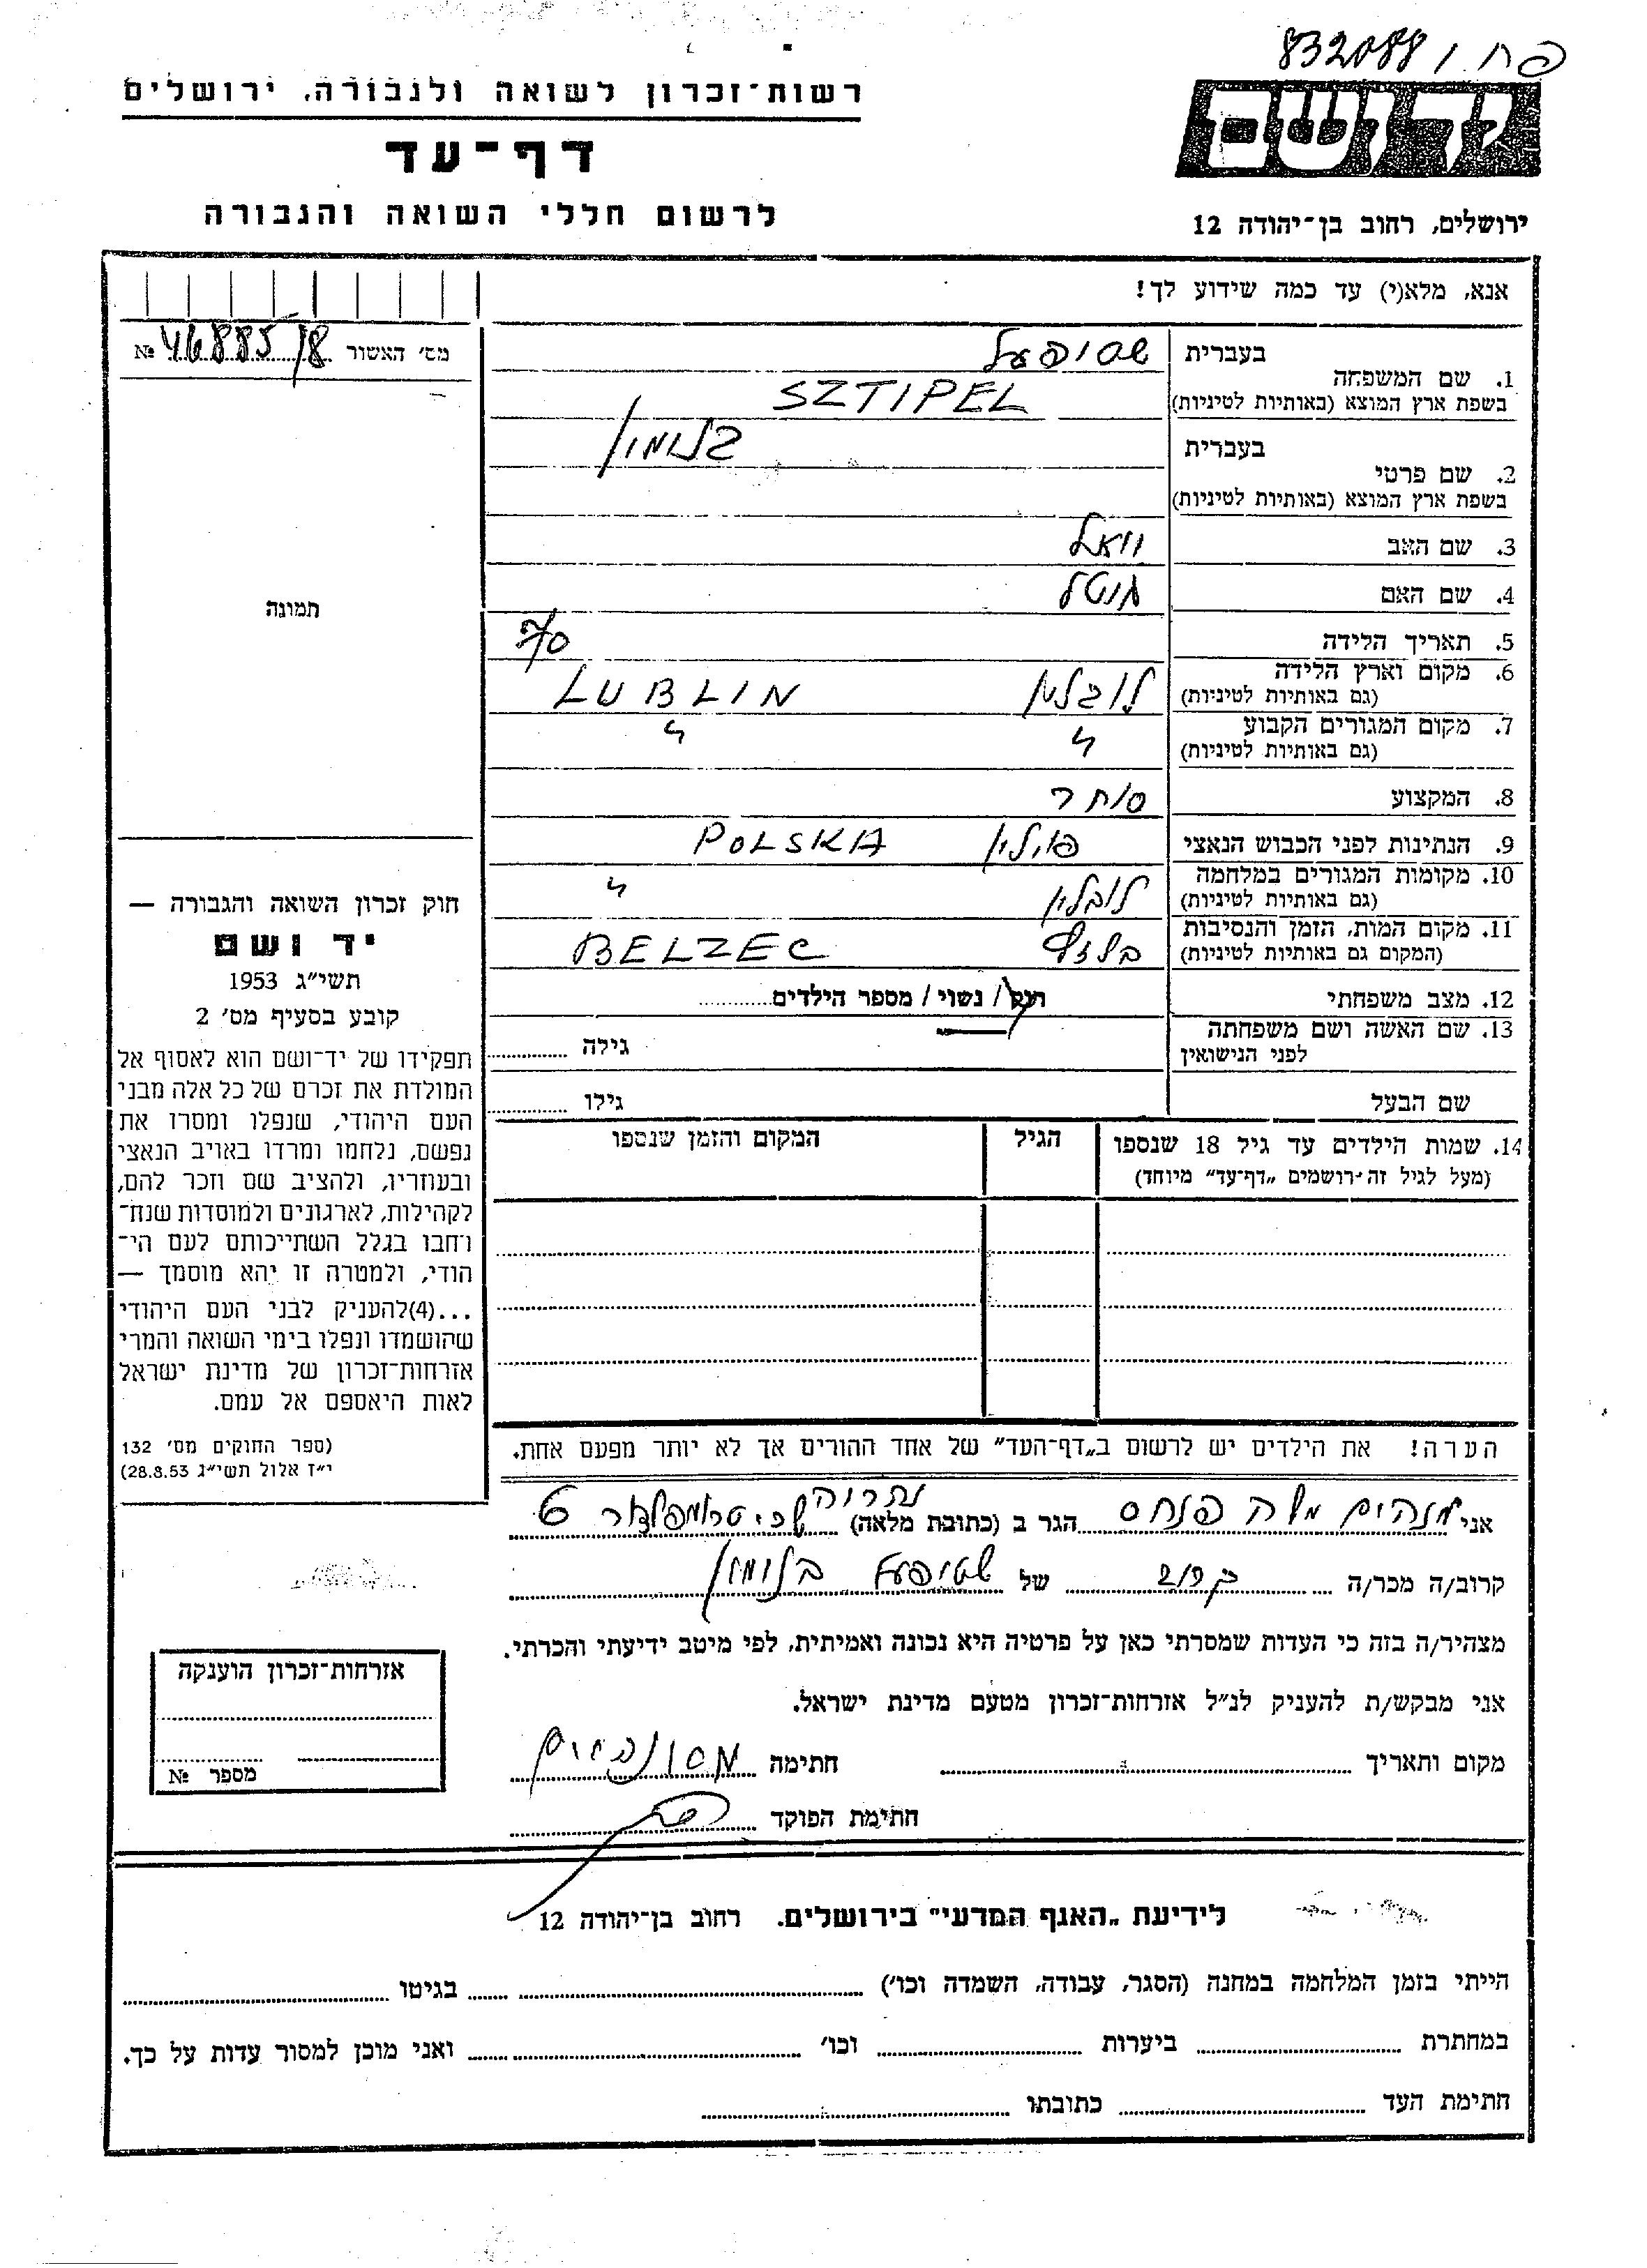 832088 / פח
רשות-זכרון לשואה ולגבורה, ירושלים
יד ושם
דף-עד
לרשום חללי השואה והגבורה
ירושלים, רחוב בן-יהודה 12
אנא, מלא(י) עד כמה שידוע לך!
מס׳ האשור № 46885/8
1. שם המשפחה בעברית
שטיפעל
בשפת ארץ המוצא (באותיות לטיניות)
SZTIPEL
2. שם פרטי בעברית
בשפת ארץ המוצא (באותיות לטיניות)
3. שם האב
4. שם האם
5. תאריך הלידה
6. מקום וארץ הלידה
(גם באותיות לטיניות)
לובלין LUBLIN
7. מקום המגורים הקבוע
(גם באותיות לטיניות)
״ ״
8. המקצוע סוחר
9. הנתינות לפני הכבוש הנאצי פולין POLSKA
10. מקומות המגורים במלחמה
(גם באותיות לטיניות)
לובלין ״
11. מקום המות, הזמן והנסיבות
(המקום גם באותיות לטיניות)
BELZEC
12. מצב משפחתי רוק / נשוי / מספר הילדים
13. שם האשה ושם משפחתה
לפני הנישואין
גילה
שם הבעל גילו
14. שמות הילדים עד גיל 18 שנספו הגיל המקום והזמן שנספו
(מעל לגיל זה רושמים „דף-עד” מיוחד)
הערה! את הילדים יש לרשום ב„דף-העד” של אחד ההורים אך לא יותר מפעם אחת.
תמונה
חוק זכרון השואה והגבורה —
יד ושם
תשי״ג 1953
קובע בסעיף מס׳ 2
תפקידו של יד-ושם הוא לאסוף אל
המולדת את זכרם של כל אלה מבני
העם היהודי, שנפלו ומסרו את
נפשם, נלחמו ומרדו באויב הנאצי
ובעוזריו, ולהציב שם וזכר להם,
לקהילות, לארגונים ולמוסדות שנח-
רחבו בגלל השתייכותם לעם הי-
הודי, ולמטרה זו יהא מוסמך —
...(4)להעניק לבני העם היהודי
שהושמדו ונפלו בימי השואה והמרי
אזרחות-זכרון של מדינת ישראל
לאות היאספם אל עמם.
(ספר החוקים מס׳ 132
י״ז אלול תשי״ג 28.8.53)
אני משה פנחס הגר ב (כתובת מלאה) נתניה טרומפלדור 6
קרוב/ה מכר/ה של שטיפעל
מצהיר/ה בזה כי העדות שמסרתי כאן על פרטיה היא נכונה ואמיתית, לפי מיטב ידיעתי והכרתי.
אני מבקש/ת להעניק לנ״ל אזרחות-זכרון מטעם מדינת ישראל.
מקום ותאריך חתימה
חתימת הפוקד
אזרחות-זכרון הוענקה
מספר №
לידיעת „האגף המדעי” בירושלים. רחוב בן-יהודה 12
הייתי בזמן המלחמה במחנה (הסגר, עבודה, השמדה וכו׳) בגיטו
במחתרת ביערות וכו׳ ואני מוכן למסור עדות על כך.
חתימת העד כתובתו